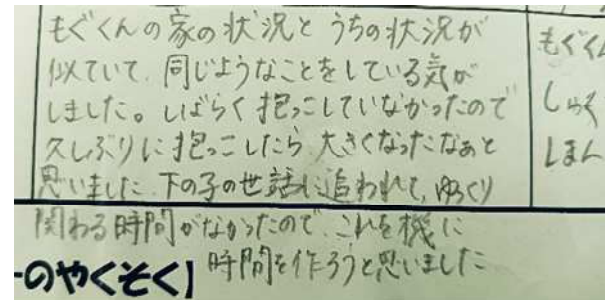 もぐくんの家の状況とうちの状況が
似ていて、同じようなことをしている気が
しました。しばらく抱っこしていなかったので
久しぶりに抱っこしたら、大きくなったなぁと
思いました。下の子の世話に追われて、ゆっくり
関わる時間がなかったので、これを機に
時間を作ろうと思いました
もぐくん
しゅく
しまん
-のやくそく】